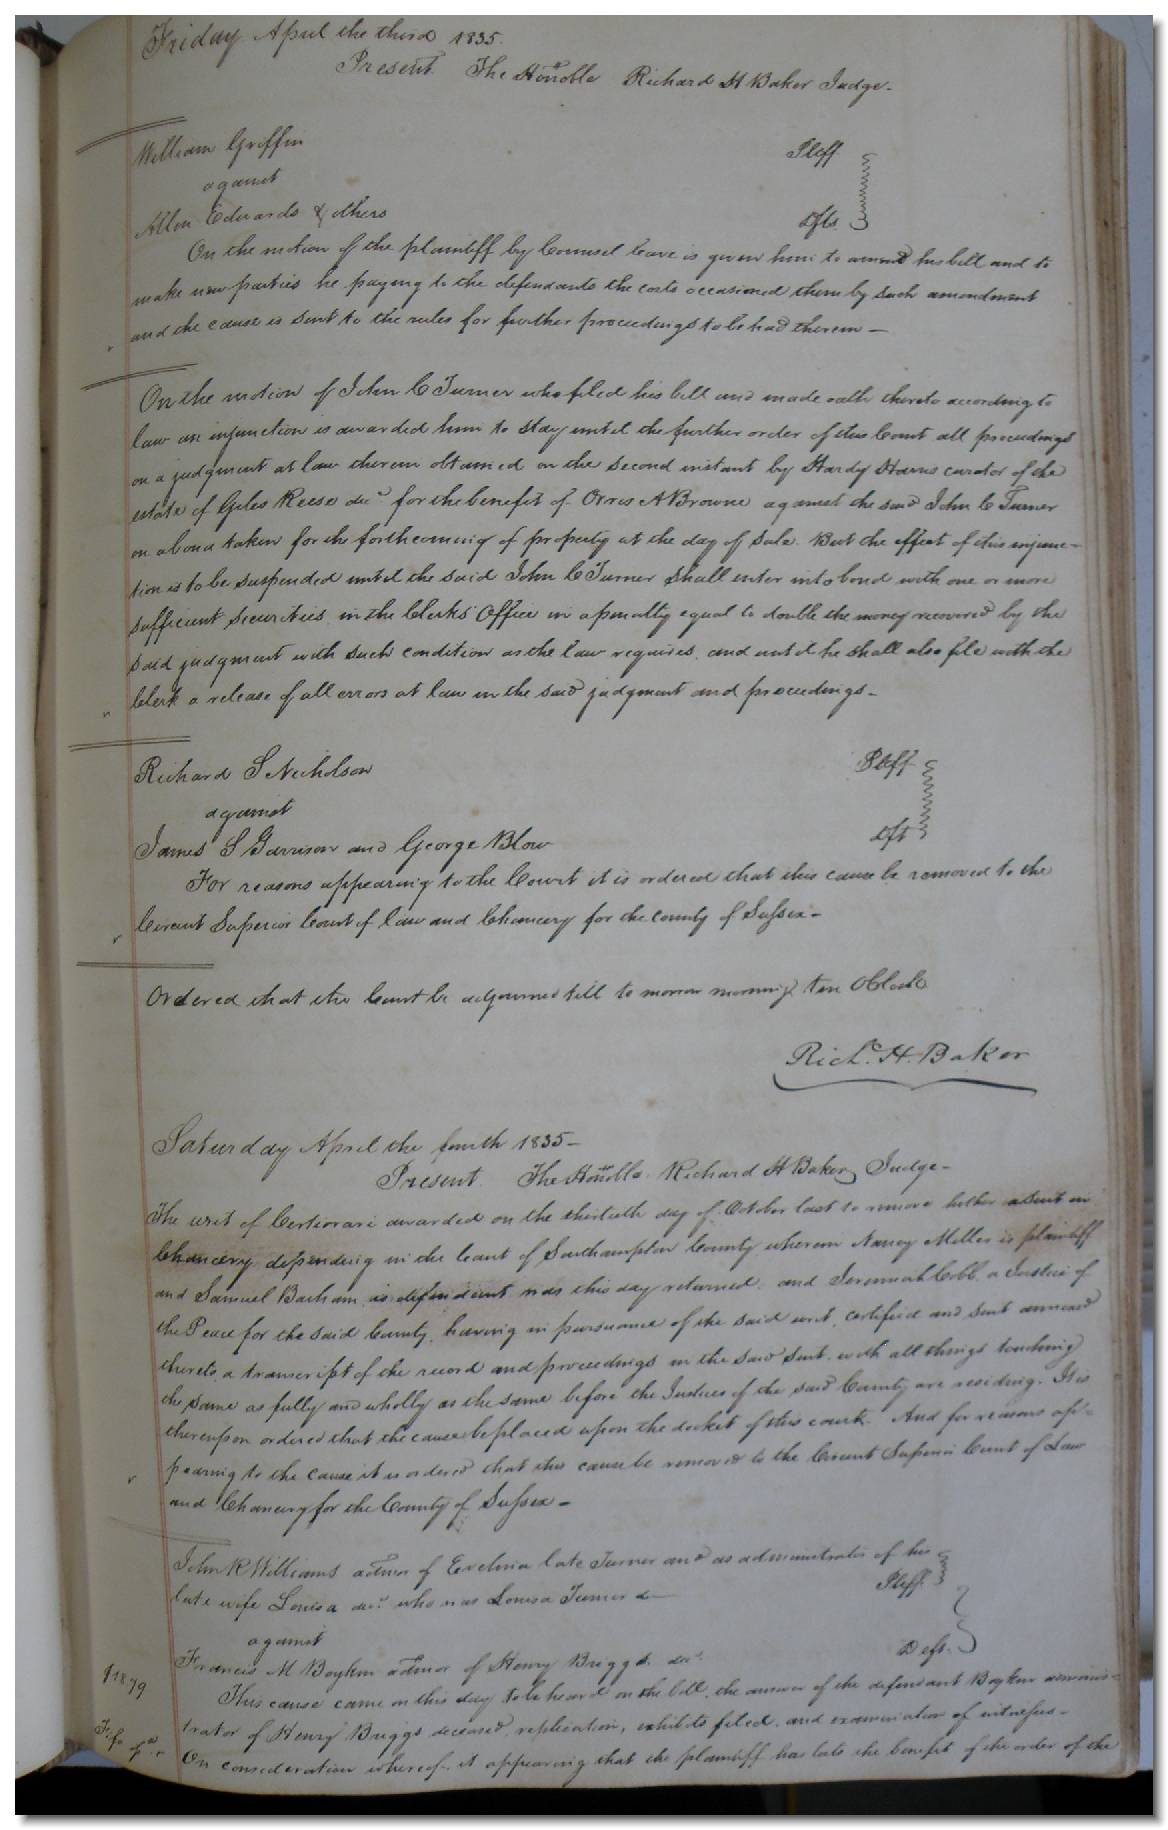 Friday April the third 1835.
Present. The Honoble Richard H Baker Judge-
William Griffin Pleff
against
Allen Edwards & others Dfts.
On the motion of the plaintiff by Counsel leave is given him to amend his bill and to
make new parties he paying to the defendants the costs occasioned them by such amendment
and the cause is sent to the rules for further proceedings to be had therein —
On the motion of John C Turner who filed his bill and made oath thereto according to
law an injunction is awarded him to stay until the further order of this Court all proceedings
on a judgment at law therein obtained on the second instant by Hardy Harris curator of the
estate of Giles Reese decd for the benefit of Orris A Browne against the said John C Turner
on a bond taken for the forthcoming of property at the day of sale. But the effect of this injunc-
tion is to be suspended until the said John C Turner shall enter into bond with one or more
sufficient securities in the Clerks Office in a penalty equal to double the money recovered by the
said judgment with such condition as the law requires, and until he shall also file with the
Clerk a release of all errors at law in the said judgment and proceedings-
Richard S Nicholson Pleff
against
James S Garrison and George Blow Dft
For reasons appearing to the Court it is ordered that this cause be removed to the
Circuit Superior Court of law and Chancery for the county of Sussex-
Ordered that the Court be adjourned till to morrow morning ten OClock
Richd. H. Baker
Saturday April the fourth 1835-
Present. The Honoble Richard H Baker Judge-
The writ of Certiorari awarded on the thirtieth day of October last to remove hither a suit in
Chancery depending in the Court of Southampton County wherein Nancy Miller is plaintiff
and Samuel Barham is defendant was this day returned. and Jeremiah Cobb a Justice of
the Peace for the said County, having in pursuance of the said writ, certified and sent annexed
thereto, a transcript of the record and proceedings in the said suit, with all things touching
the same as fully and wholly as the same before the Justices of the said County are residing. It is
thereupon ordered that the cause be placed upon the docket of this court. And for reasons ap-
pearing to the cause it is ordered that this cause be removed to the Circuit Superior Court of Law
and Chancery for the County of Sussex-
John R Williams admor of Evelina late Turner and as administrator of his
late wife Louisa decd who was Louisa Turner Pleff
against
Francis M Boykin admor of Henry Briggs decd. Deft.
This cause came on this day to be heard on the bill, the answer of the defendant Boykin adminis-
trator of Henry Briggs deceased, replication, exhibits filed, and examination of witnesses-
On consideration whereof it appearing that the plaintiff has lost the benefit of the order of the